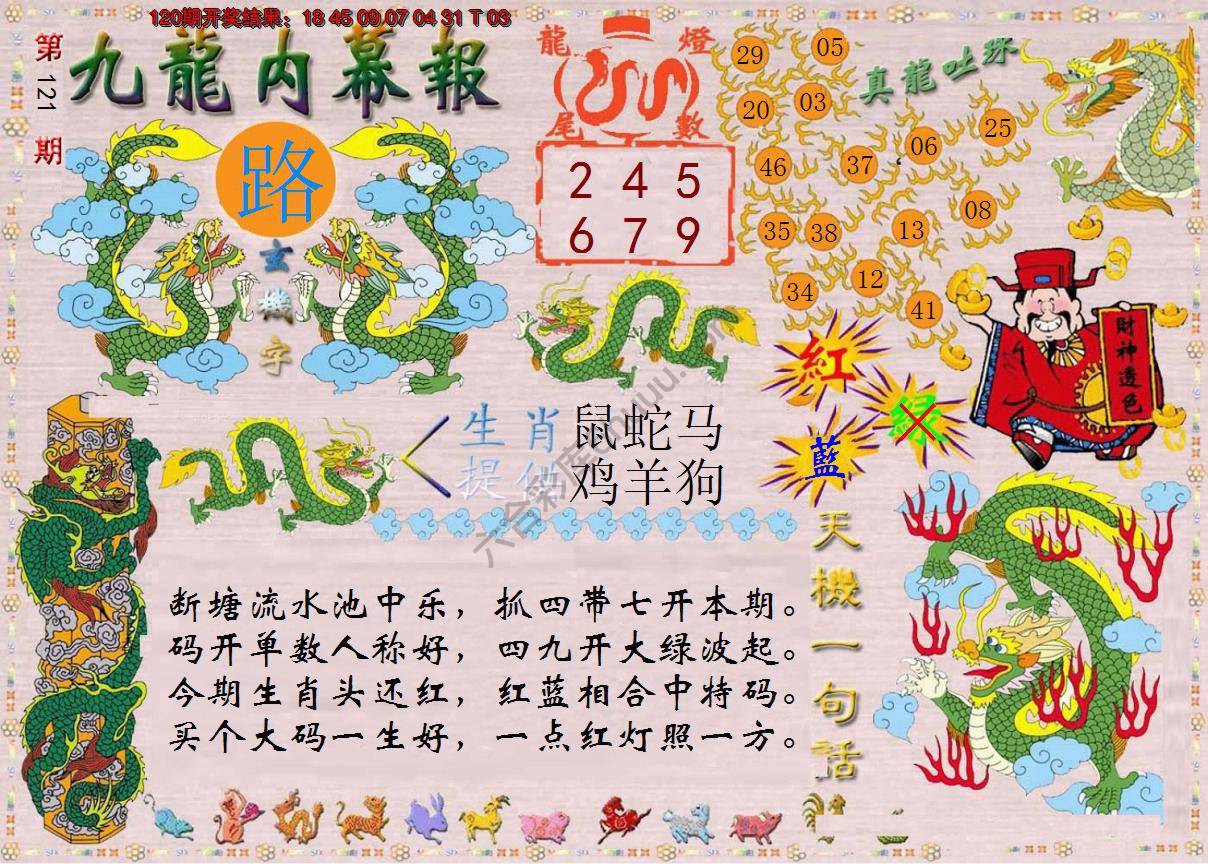 120期开奖结果：18 45 09 07 04 31 T 03
第121期
九龍内幕報
路
玄機字
龍燈
尾數
2 4 5
6 7 9
真龍吐珠
29 05
20 03
46 37 06 25
35 38 13 08
34 12 41
財神透色
紅
绿
藍
生肖
提供
鼠蛇马
鸡羊狗
天機一句話
断塘流水池中乐，抓四带七开本期。
码开单数人称好，四九开大绿波起。
今期生肖头还红，红蓝相合中特码。
买个大码一生好，一点红灯照一方。